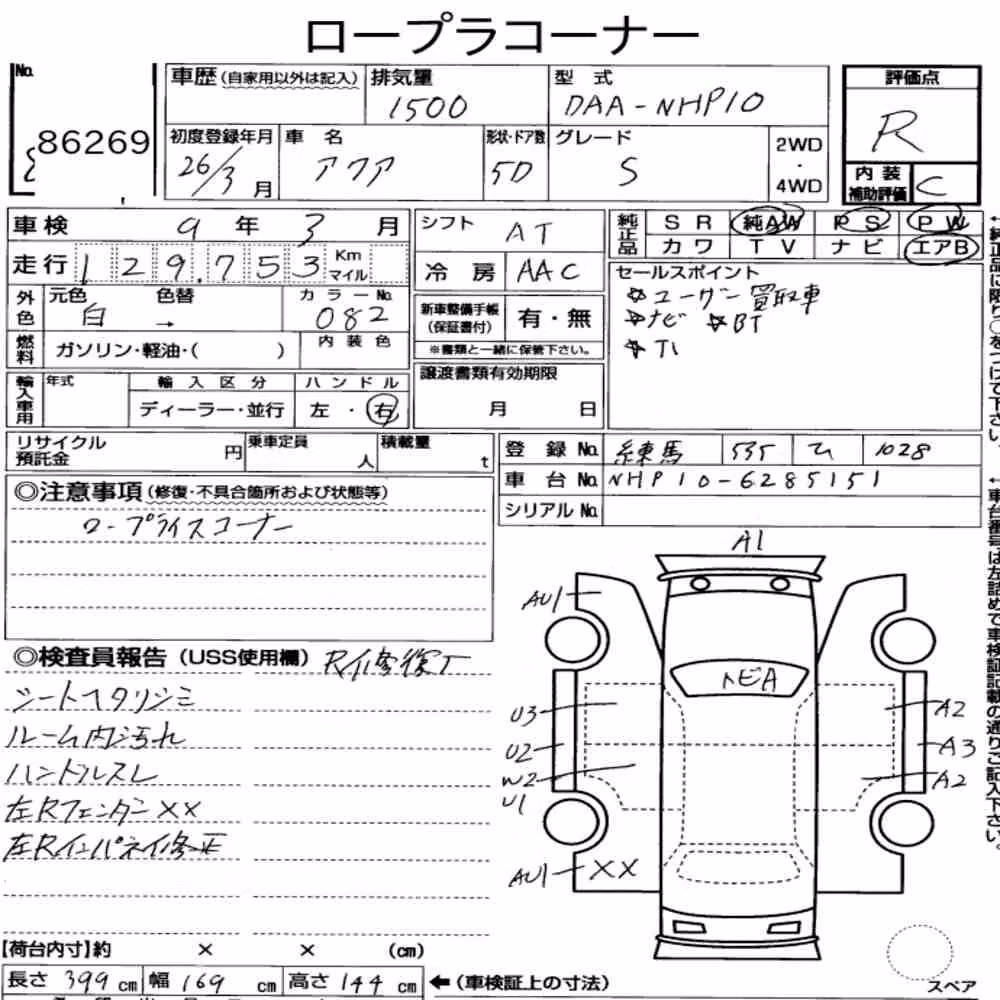 ロープラコーナー
No. 86269
車歴 (自家用以外は記入) 排気量 1500 型式 DAA-NHP10 評価点 R
初度登録年月 26/3 月 車名 アクア 形状・ドア数 5D グレード S 2WD・4WD 内装補助評価 C
車検 9年 3月 シフト AT 純正品 SR 純AW PS PW
走行 129,753 Km マイル カワ TV ナビ エアB
冷房 AAC セールスポイント
外色 元色 白 色替 → カラーNo. 082 ☆ユーザー買取車
新車整備手帳 (保証書付) 有・無 ☆ナビ ☆BT
燃料 ガソリン・軽油・( ) 内装色 ※書類と一緒に保管下さい。 ☆TI
輸入車用 年式 輸入区分 ハンドル 譲渡書類有効期限
ディーラー・並行 左・右 月 日
リサイクル預託金 円 乗車定員 人 積載量 t 登録No. 練馬 535 1028
車台No. NHP10-6285151
シリアルNo.
◎注意事項 (修復・不具合箇所および状態等)
ロープライスコーナー
◎検査員報告 (USS使用欄)
シートヘタリシミ
ルーム内汚れ
ハンドルスレ
左RフェンダーXX
左Rインパネイ修正
A1
AU1
トビA
U3 A2
U2 A3
W2 A2
U1
AU1 XX
スペア
【荷台内寸】約 × × (cm)
長さ 399 cm 幅 169 cm 高さ 144 cm ←(車検証上の寸法)
←純正品に限り○をつけて下さい。
←車台番号は左詰めで車検証記載の通りご記入下さい。